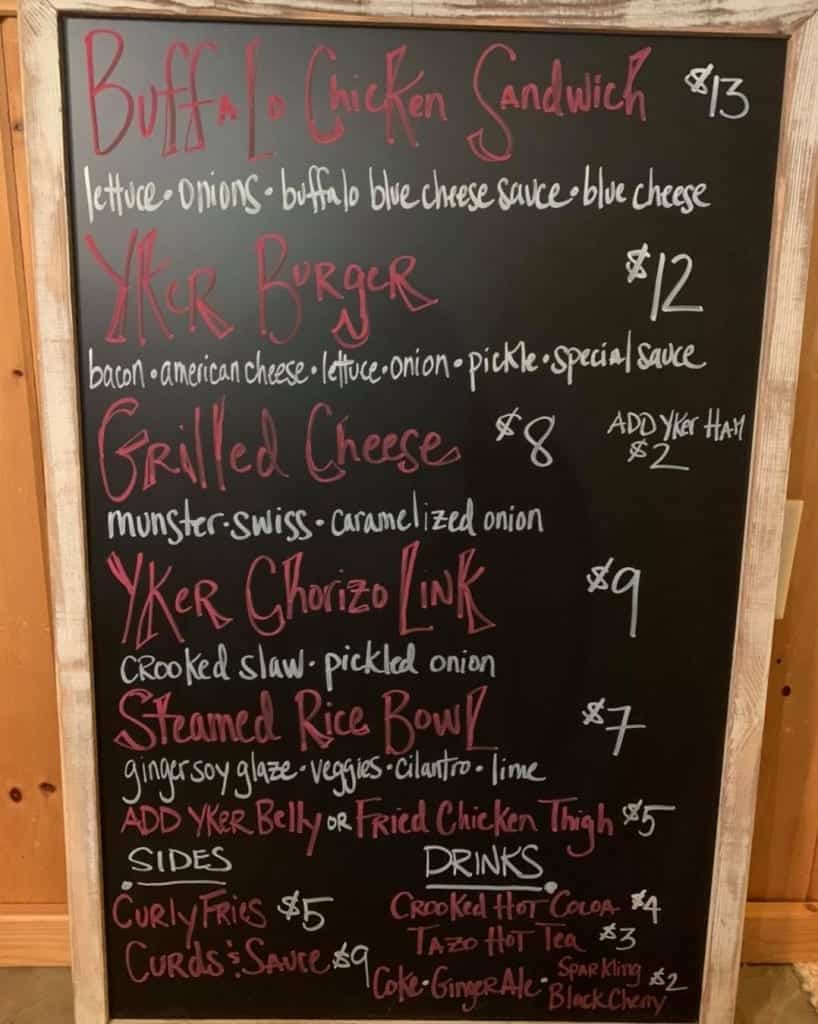 Buffalo Chicken Sandwich $13
lettuce • onions • buffalo blue cheese sauce • blue cheese
YKer Burger $12
bacon • american cheese • lettuce • onion • pickle • special sauce
Grilled Cheese $8 ADD YKer HAM $2
munster • swiss • caramelized onion
YKer Chorizo Link $9
crooked slaw • pickled onion
Steamed Rice Bowl $7
ginger soy glaze • veggies • cilantro • lime
ADD YKer Belly or Fried Chicken Thigh $5
SIDES
Curly Fries $5
Curds & Sauce $9
DRINKS
Crooked Hot Cocoa $4
Tazo Hot Tea $3
Coke • Ginger Ale • Sparkling Black Cherry $2